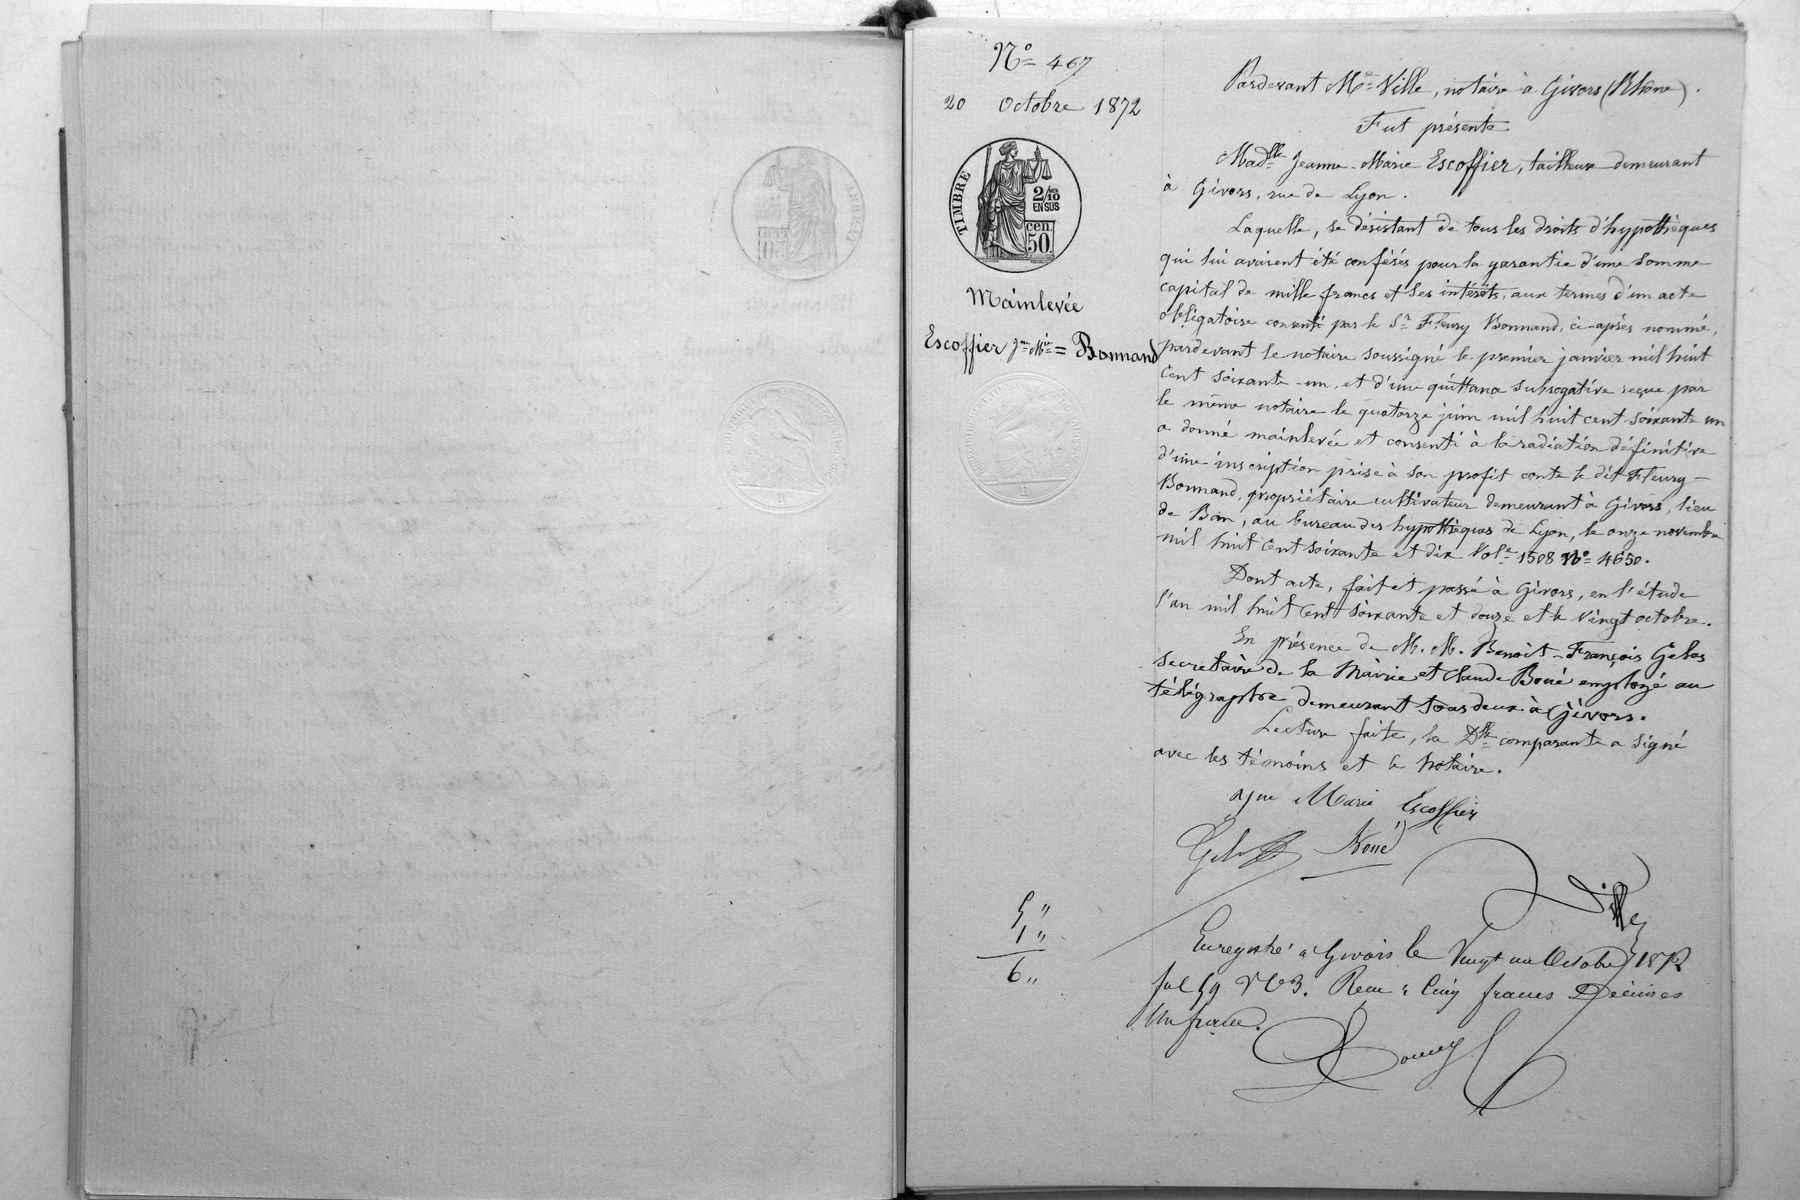 N° 467
20 Octobre 1872
TIMBRE
2/10
EN SUS
cen.
50.
Mainlevée
Escoffier Jne Mie = Bonnand
Pardevant Me Ville, notaire à Givors (Rhône).
Fut présente
Madlle Jeanne-Marie Escoffier, tailleuse demeurant
à Givors, rue de Lyon.
Laquelle, se désistant de tous les droits d'hypothèques
qui lui avaient été conférés pour la garantie d'une somme
capital de mille francs et ses intérêts, aux termes d'un acte
obligatoire consenti par le Sr Fleury Bonnand, ci-après nommé,
pardevant le notaire soussigné le premier janvier mil huit
cent soixante-un, et d'une quittance subrogative reçue par
le même notaire le quatorze juin mil huit cent soixante un
a donné mainlevée et consenti à la radiation définitive
d'une inscription prise à son profit contre le dit Fleury-
Bonnand, propriétaire cultivateur demeurant à Givors, lieu
de Ban, au bureau des hypothèques de Lyon, le onze novembre
mil huit cent soixante et dix Vole 1508 N° 4650.
Dont acte, fait et passé à Givors, en l'étude
l'an mil huit cent soixante et douze et le vingt octobre.
En présence de M. M. Benoit-François Gelas
secretaire de la Mairie et Claude Boué employé au
télégraphe demeurant tous deux à Givors.
Lecture faite, la Dlle comparante a signé
avec les témoins et le notaire.
Marie Escoffier
Gelas Boué
Ville
5 "
1 "
6 "
Enregistré à Givors le Vingt un Octobre 1872
fol 59 Vo C 3. Reçu : Cinq francs Décimes
Un franc.